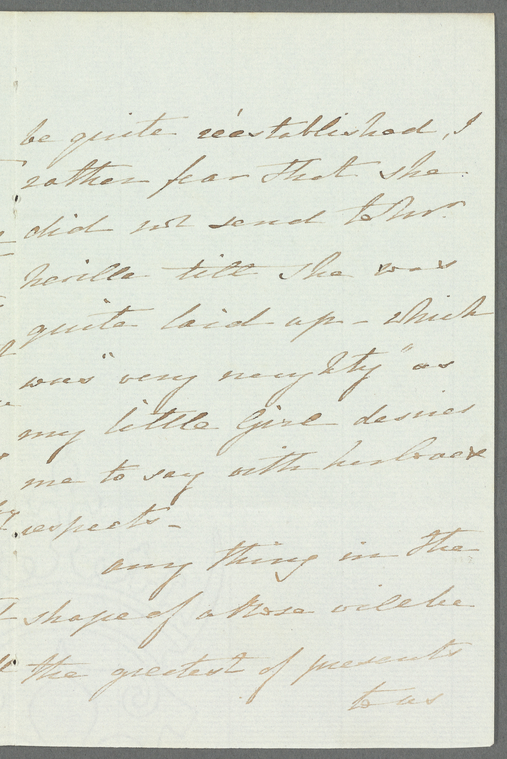 be quite réestablished, I
rather fear that she
did not send to Mr.
Neville till she was
quite laid up - which
was "very naughty" as
my little Girl desires
me to say with her
respects -
any thing in the
shape of a Rose will be
the greatest of presents
to us